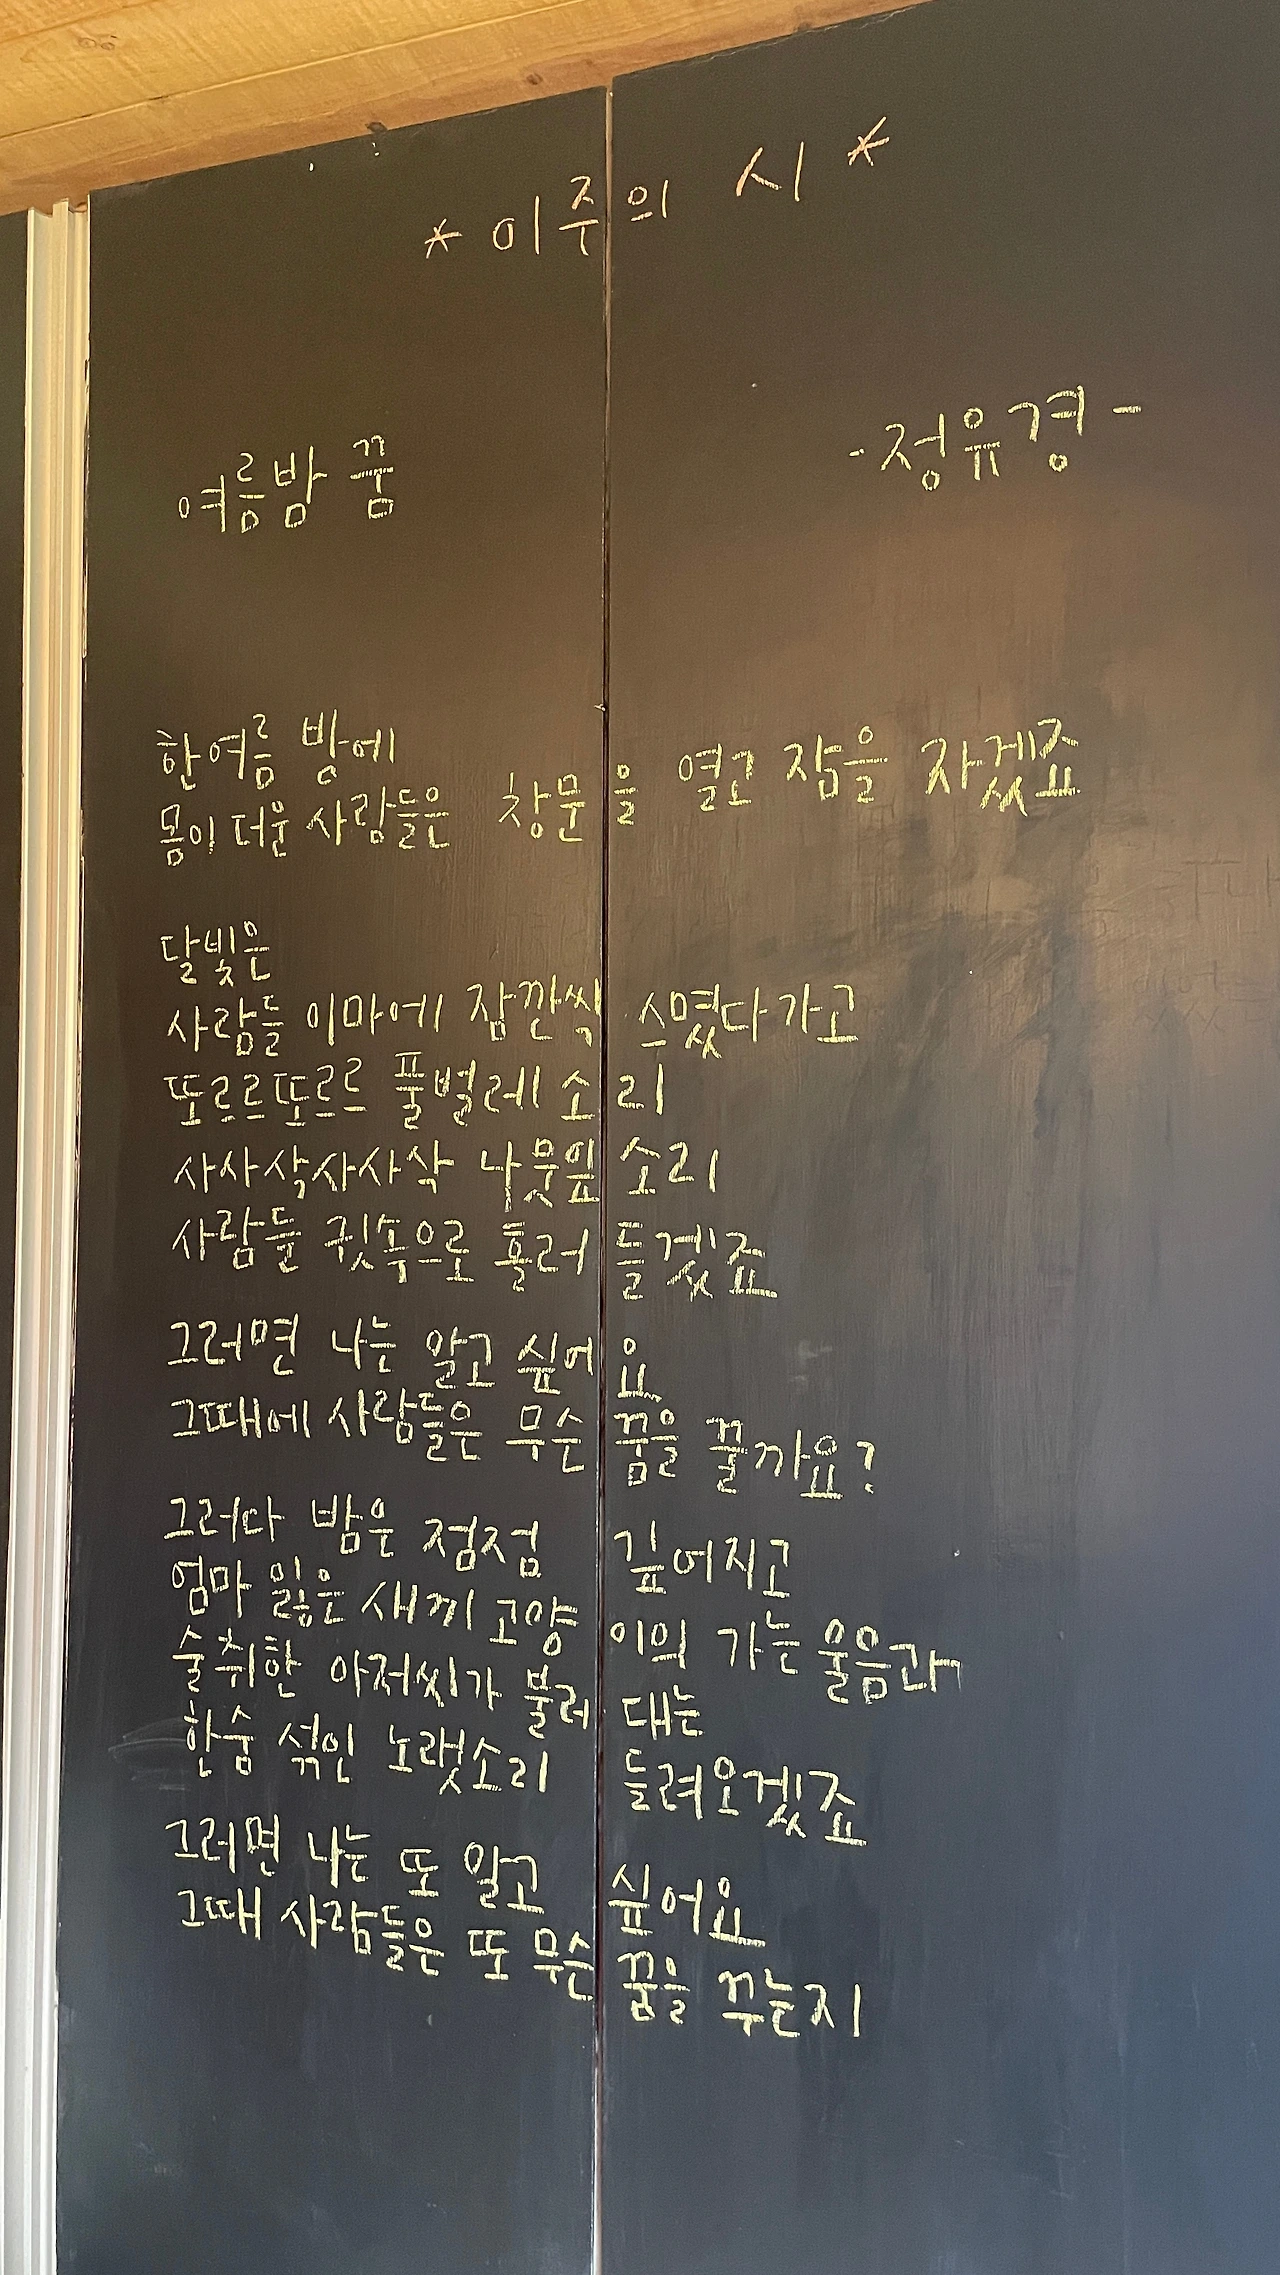 * 이주의 시 *
여름밤 꿈
- 정유경 -
한여름 밤에
몸이 더운 사람들은 창문을 열고 잠을 자겠죠
달빛은
사람들 이마에 잠깐씩 스몄다 가고
또르르또르르 풀벌레 소리
사사삭사사삭 나뭇잎 소리
사람들 귓속으로 흘러 들겠죠
그러면 나는 알고 싶어요
그때에 사람들은 무슨 꿈을 꿀까요?
그러다 밤은 점점 깊어지고
엄마 잃은 새끼 고양이의 가는 울음과
술취한 아저씨가 불러 대는
한숨 섞인 노랫소리 들려오겠죠
그러면 나는 또 알고 싶어요
그때 사람들은 또 무슨 꿈을 꾸는지